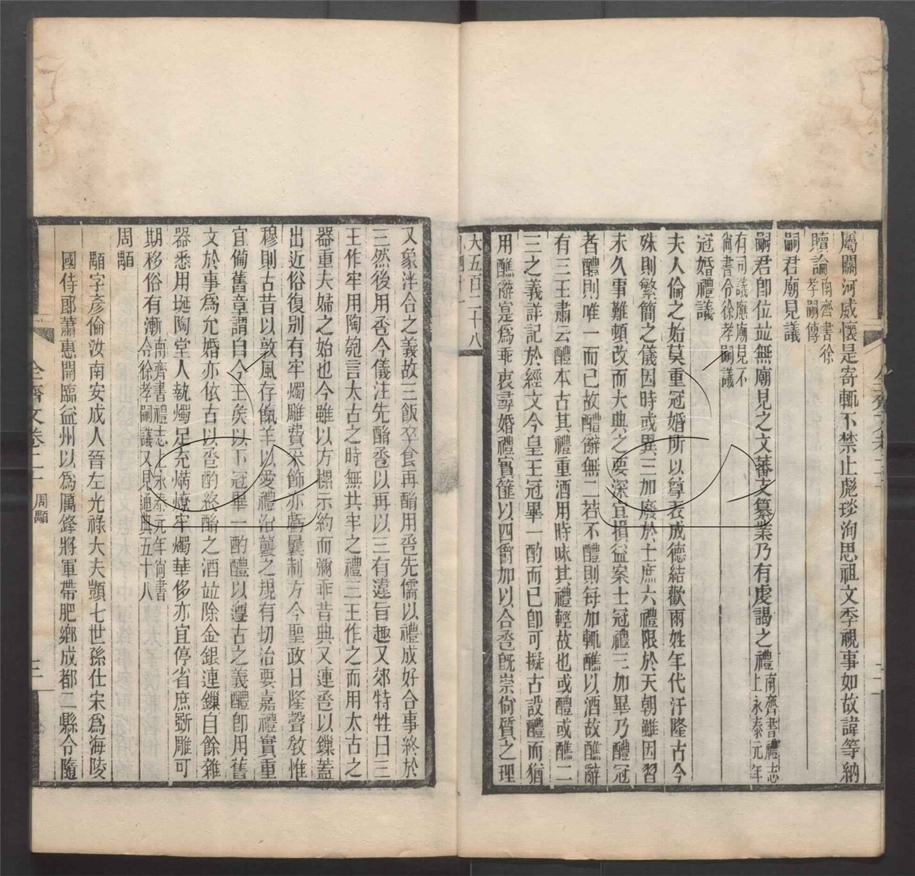 屬關河感懷是寄輒不禁止彪琰洵思祖文季視事如故諱等納
贖論南齊書徐孝嗣傳
嗣君廟見議
嗣君卽位竝無廟見之文蕃支纂業乃有虔謁之禮南齊書禮志上永泰元年
有司議應廟見不尙書令徐孝嗣議
冠婚禮議
夫人倫之始莫重冠婚所以尊表成德結歡兩姓年代汙隆古今
殊則繁簡之儀因時或異三加廢於士庶六禮限於天朝雖因習
未久事難頓改而大典之要深宜損益案士冠禮三加畢乃醴冠
者醴則唯一而已故醴辭無二若不醴則每加輒醮以酒故醮辭
有三王肅云醴本古其禮重酒用時味其禮輕故也或醴或醮二
三之義詳記於經文今皇王冠畢一酌而已卽可擬古設醴而猶
用醮辭寔爲乖衷尋婚禮實篚以四爵加以合卺旣崇尙質之理
大五百二十八
又象泮合之義故三飯卒食再酳用卺先儒以禮成好合事終於
三然後用卺今儀注先酳卺以再以三有違旨趣又郊特牲曰三
王作牢用陶匏言太古之時無共牢之禮三王作之而用太古之
器重夫婦之始也今雖以方樏示約而彌乖昔典又連卺以鏁蓋
出近俗復別有牢燭雕費采飾亦虧曩制方今聖政日隆聲敎惟
穆則古昔以敦風存餼羊以愛禮沿襲之規有切治要嘉禮實重
宜備舊章謂自今王侯以下冠畢一酌醴以遵古之義醴卽用舊
文於事爲允婚亦依古以卺酌終酳之酒竝除金銀連鏁自餘雜
器悉用埏陶堂人執燭足充爇燎牢燭華侈亦宜停省庶斲雕可
期移俗有漸南齊書禮志上永泰元年尙書令徐孝嗣議又見通典五十八
周顒
顒字彥倫汝南安成人晉左光祿大夫顗七世孫仕宋爲海陵
國侍郎蕭惠開臨益州以爲厲鋒將軍帶肥鄉成都二縣令隨
全齊文卷二十 周顒